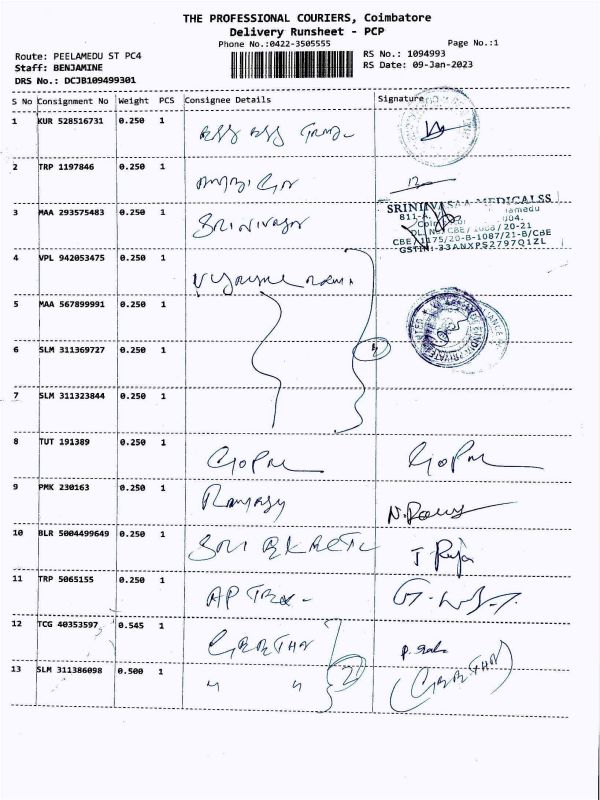 THE PROFESSIONAL COURIERS, Coimbatore
Delivery Runsheet - PCP
Phone No.:0422-3505555
Page No.:1
Route: PEELAMEDU ST PC4
RS No.: 1094993
Staff: BENJAMINE
RS Date: 09-Jan-2023
DRS No.: DCJB109499301
S No Consignment No Weight PCS Consignee Details Signature
1 KUR 528516731 0.250 1
2 TRP 1197846 0.250 1
3 MAA 293575483 0.250 1 Srinivasa
SRINIVASAA MEDICALSS
811-A,
004.
20-21
CBE/1175/20-B-1087/21-B/CBE
GSTIN: 33ANXPS2797Q1ZL
4 VPL 942053475 0.250 1
5 MAA 567899991 0.250 1
6 SLM 311369727 0.250 1 4
7 SLM 311323844 0.250 1
8 TUT 191389 0.250 1 Gopal Gopal
9 PMK 230163 0.250 1 Ramasy
10 BLR 5004499649 0.250 1 SRI J Raja
11 TRP 5065155 0.250 1 AP
12 TCG 40353597 0.545 1 GEETHA
13 SLM 311386098 0.500 1 " " 2 (GEETHA)